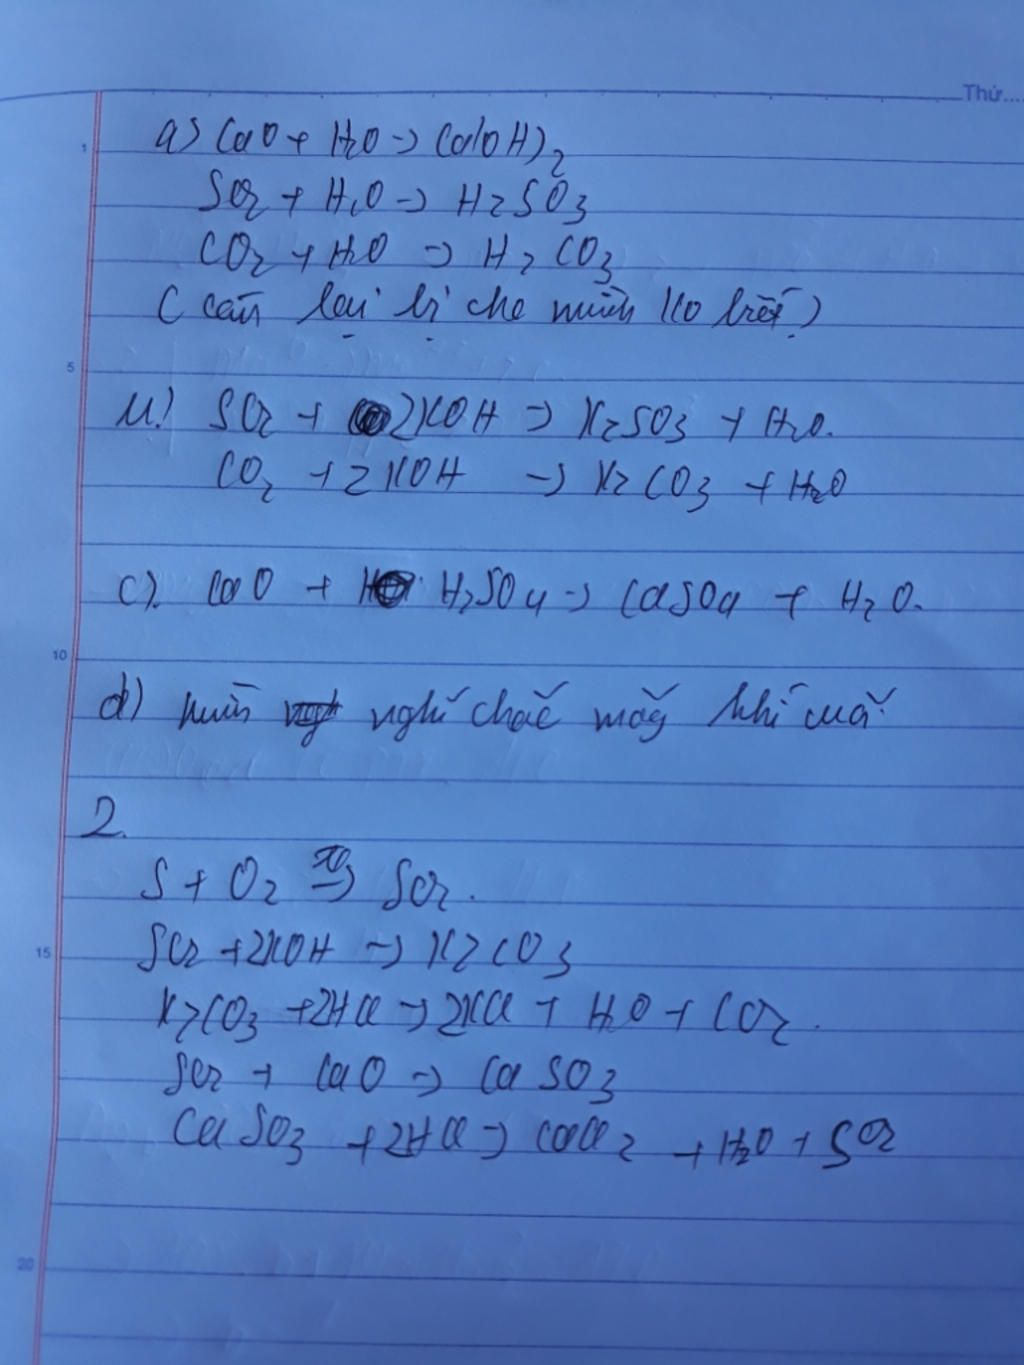 Thứ....
1
a) CaO + H2O → Ca(OH)2
SO2 + H2O → H2SO3
CO2 + H2O → H2CO3
( còn lại bị che mình ko biết )
5
SO2 + 2KOH → K2SO3 + H2O.
CO2 + 2KOH → K2CO3 + H2O
c). CaO + H2SO4 → CaSO4 + H2O.
10
d) mình nghĩ chắc mấy khí
2.
S + O2 → SO2.
15
SO2 + 2KOH → K2CO3
K2CO3 + 2HCl → 2KCl + H2O + CO2.
SO2 + CaO → CaSO3
CaSO3 + 2HCl → CaCl2 + H2O + SO2
20